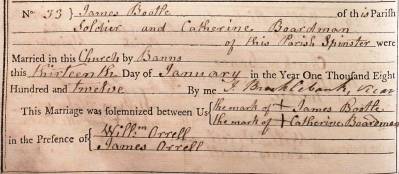 No. 33 } James Bootle of this Parish
Soldier and Catherine Boardman
of this Parish Spinster were
Married in this Church by Banns
this thirteenth Day of January in the Year One Thousand Eight
Hundred and twelve By me J Bracklebank, Vicar
This Marriage was solemnized between Us { the mark of + James Bootle
the mark of + Catherine Boardman
in the Presence of { Willm Orrell
James Orrell